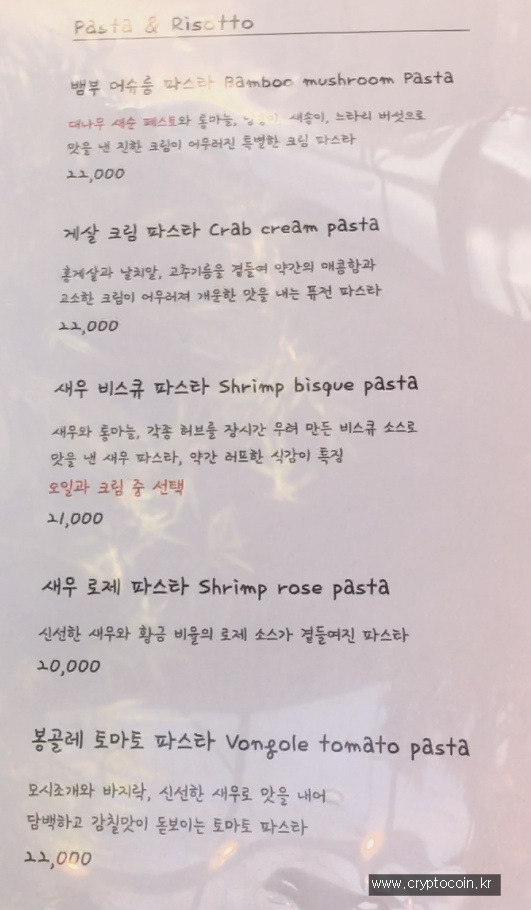 Pasta & Risotto
뱀부 머쉬룸 파스타 Bamboo mushroom Pasta
대나무 새순 페스토와 통마늘, 새송이, 느타리 버섯으로
맛을 낸 진한 크림이 어우러진 특별한 크림 파스타
22,000
게살 크림 파스타 Crab cream pasta
홍게살과 날치알, 고추기름을 곁들여 약간의 매콤함과
고소한 크림이 어우러져 개운한 맛을 내는 퓨전 파스타
22,000
새우 비스큐 파스타 Shrimp bisque pasta
새우와 통마늘, 각종 허브를 장시간 우려 만든 비스큐 소스로
맛을 낸 새우 파스타, 약간 러프한 식감이 특징
오일과 크림 중 선택
21,000
새우 로제 파스타 Shrimp rose pasta
신선한 새우와 황금 비율의 로제 소스가 곁들여진 파스타
20,000
봉골레 토마토 파스타 Vongole tomato pasta
모시조개와 바지락, 신선한 새우로 맛을 내어
담백하고 감칠맛이 돋보이는 토마토 파스타
22,000
www.cryptocoin.kr